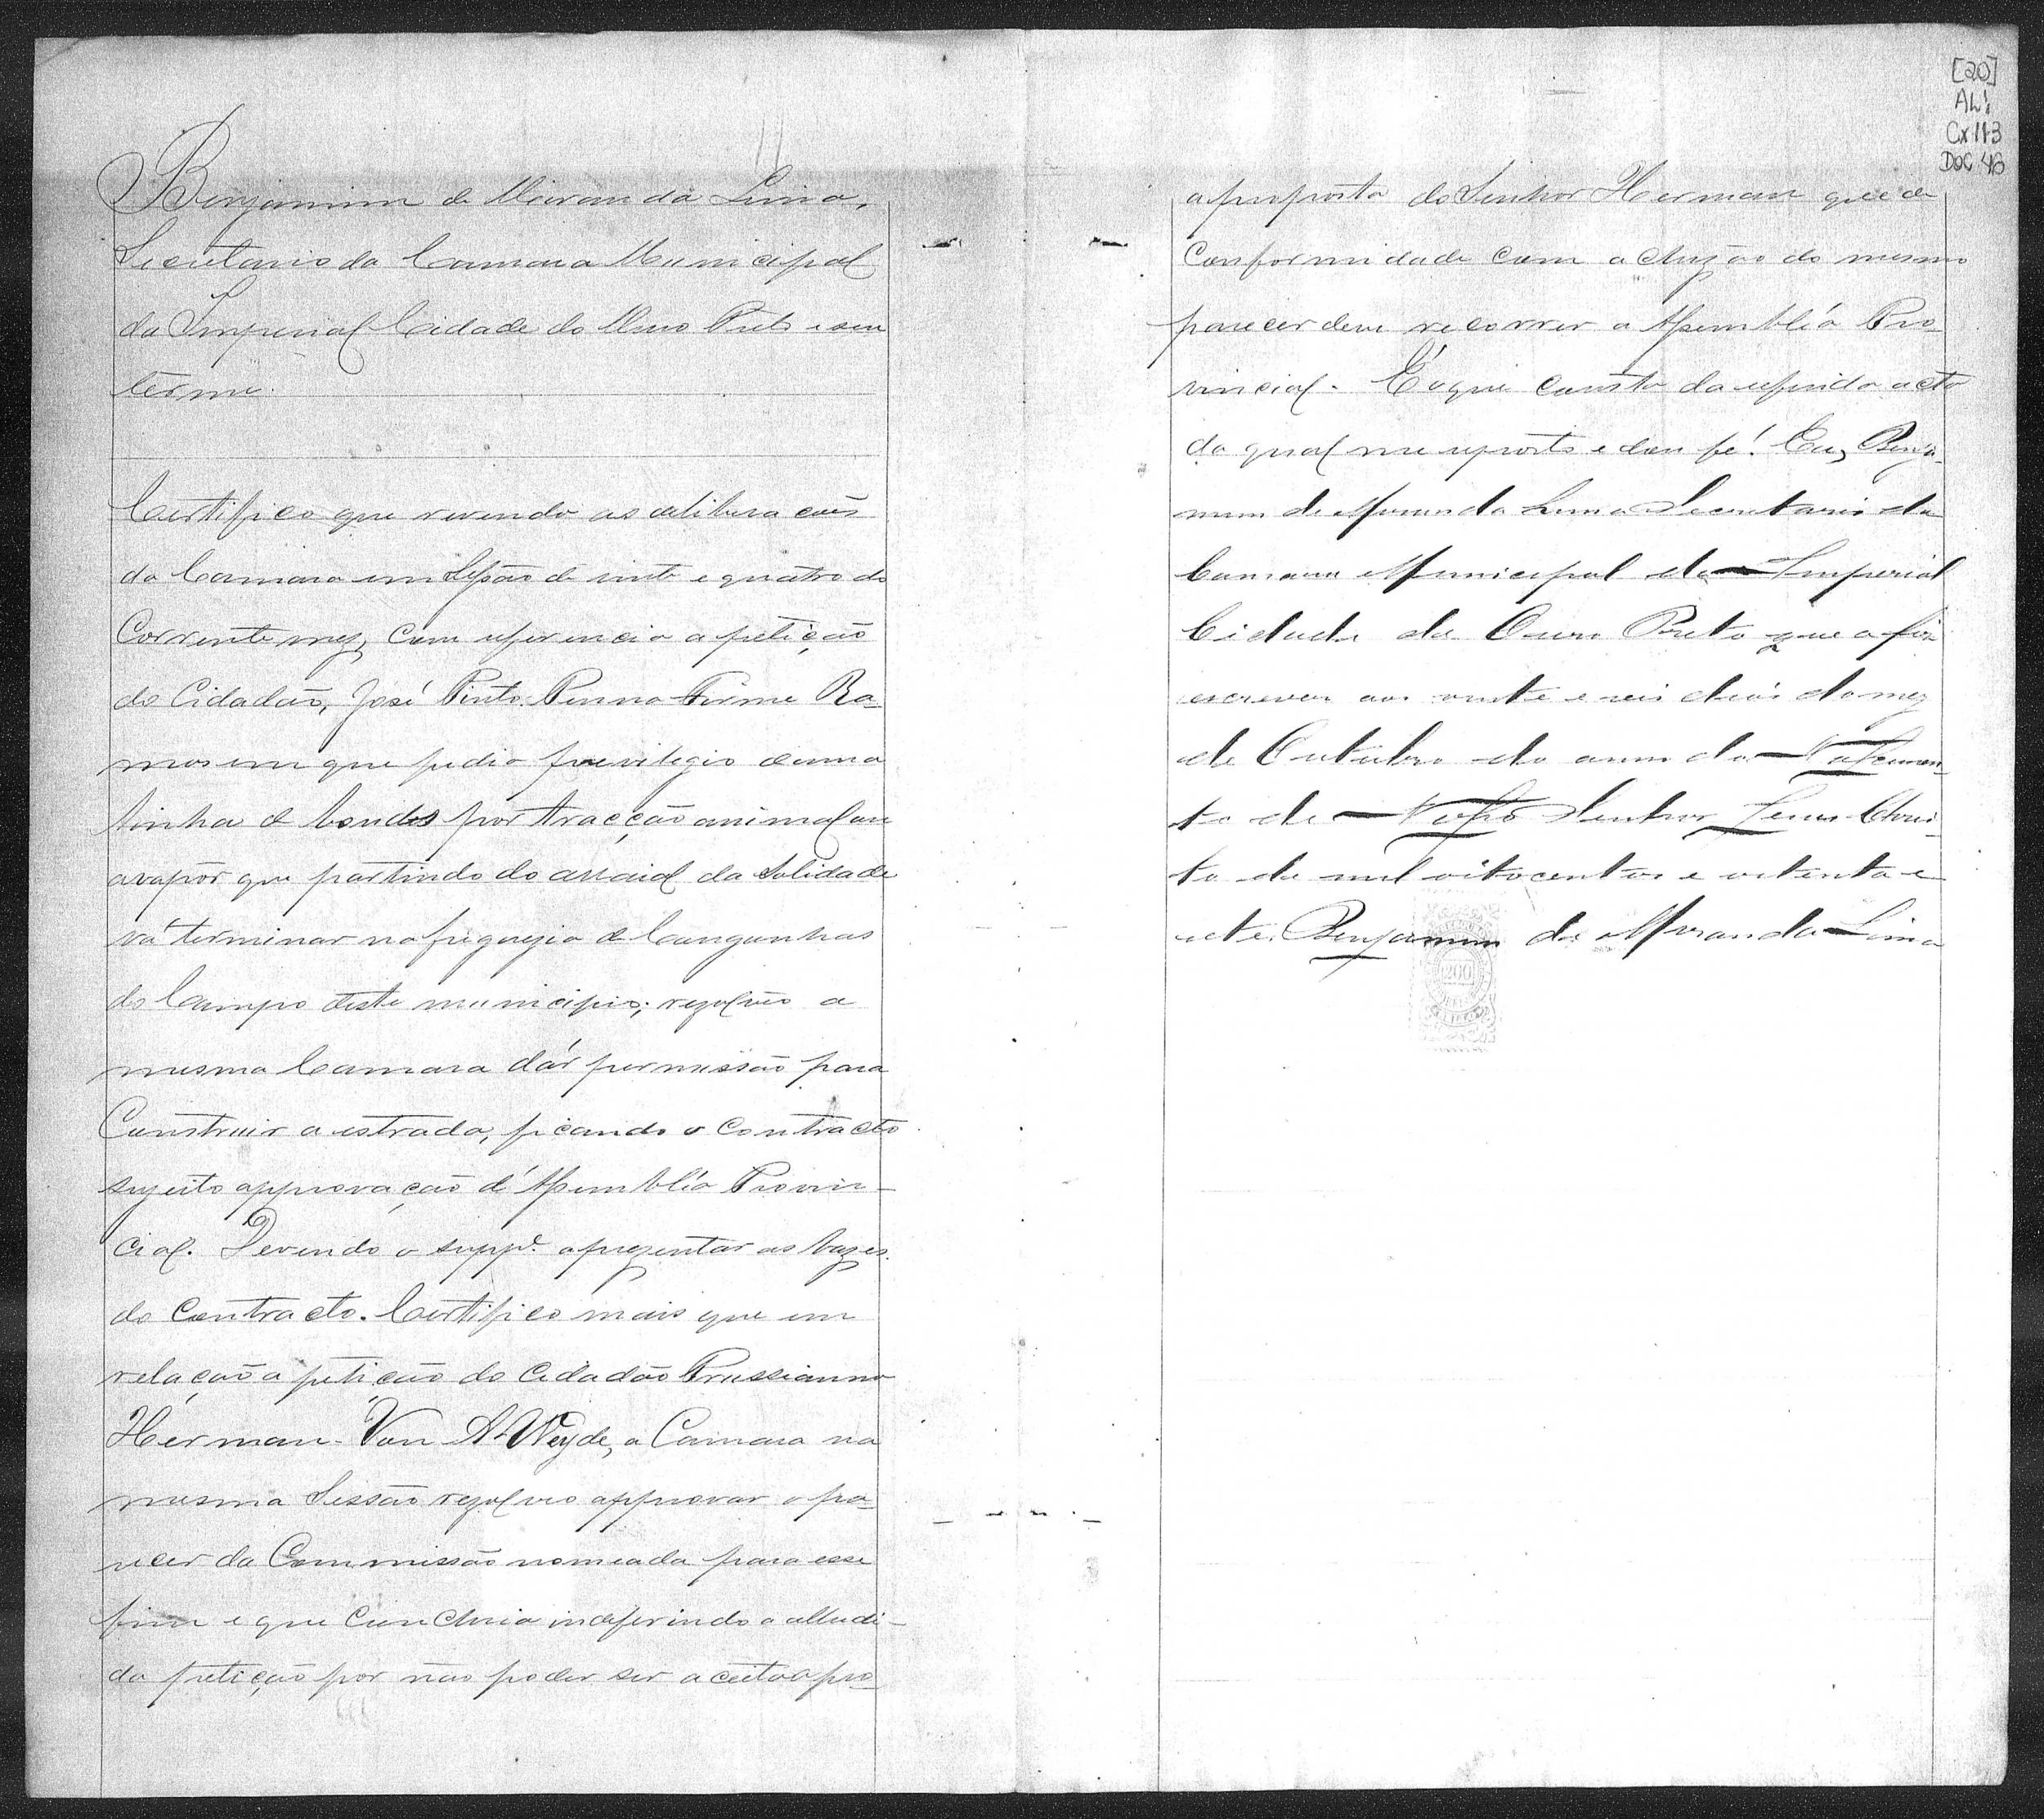 [20]
AL1
Cx 113
Doc 43
Benjamim de Miranda Lima,
Secretario da Camara Municipal
da Imperial Cidade do Ouro Preto e seu
termo.
Certifico que revendo as deliberacoẽs
da Camara em Sessão de vinte e quatro do
Corrente mez, com referencia a petição
do Cidadaõ, José Pinto Penna Firme Ra-
mos em que pedio previlegio de uma
linha de bondes por tracção animal ou
a vapôr que partindo do arraial da Solidade
vá terminar na freguezia de Congonhas
do Campo deste municipio; rezolveo a
mesma Camara dár permissaõ para
Construir a estrada, ficando o Contracto
sugeito approvaçaõ d'Assembléa Provin-
cial. Devendo o suppe. aprezentar as bazes
do Contracto. Certifico mais que em
relaçaõ a petiçaõ do Cidadaõ Prussianno
Herman Von A Weyde, a Camara na
mesma Sessão rezolveo approvar o pa-
recer da Commissão nomeada para esse
fim e que concluia indeferindo a alludi-
da petiçaõ por naõ poder ser aceita a pro
a proposta do Senhor Herman que de
Conformidade com a cluzão do mesmo
parecer deve recorrer a Assembléa Pro-
vincial. É o que consta da referida acta
da qual me reporto e dou fé. Eu, Benja-
mim de Miranda Lima Secretario da
Camara Municipal da Imperial
Cidade de Ouro Preto que a fiz
escrever aos vinte e seis dias do mez
de Outubro do anno do Nascimen-
to de Nosso Senhor Jesus Chris-
to de mil oitocentos e oitenta e
sete. Benjamim de Miranda Lima
200